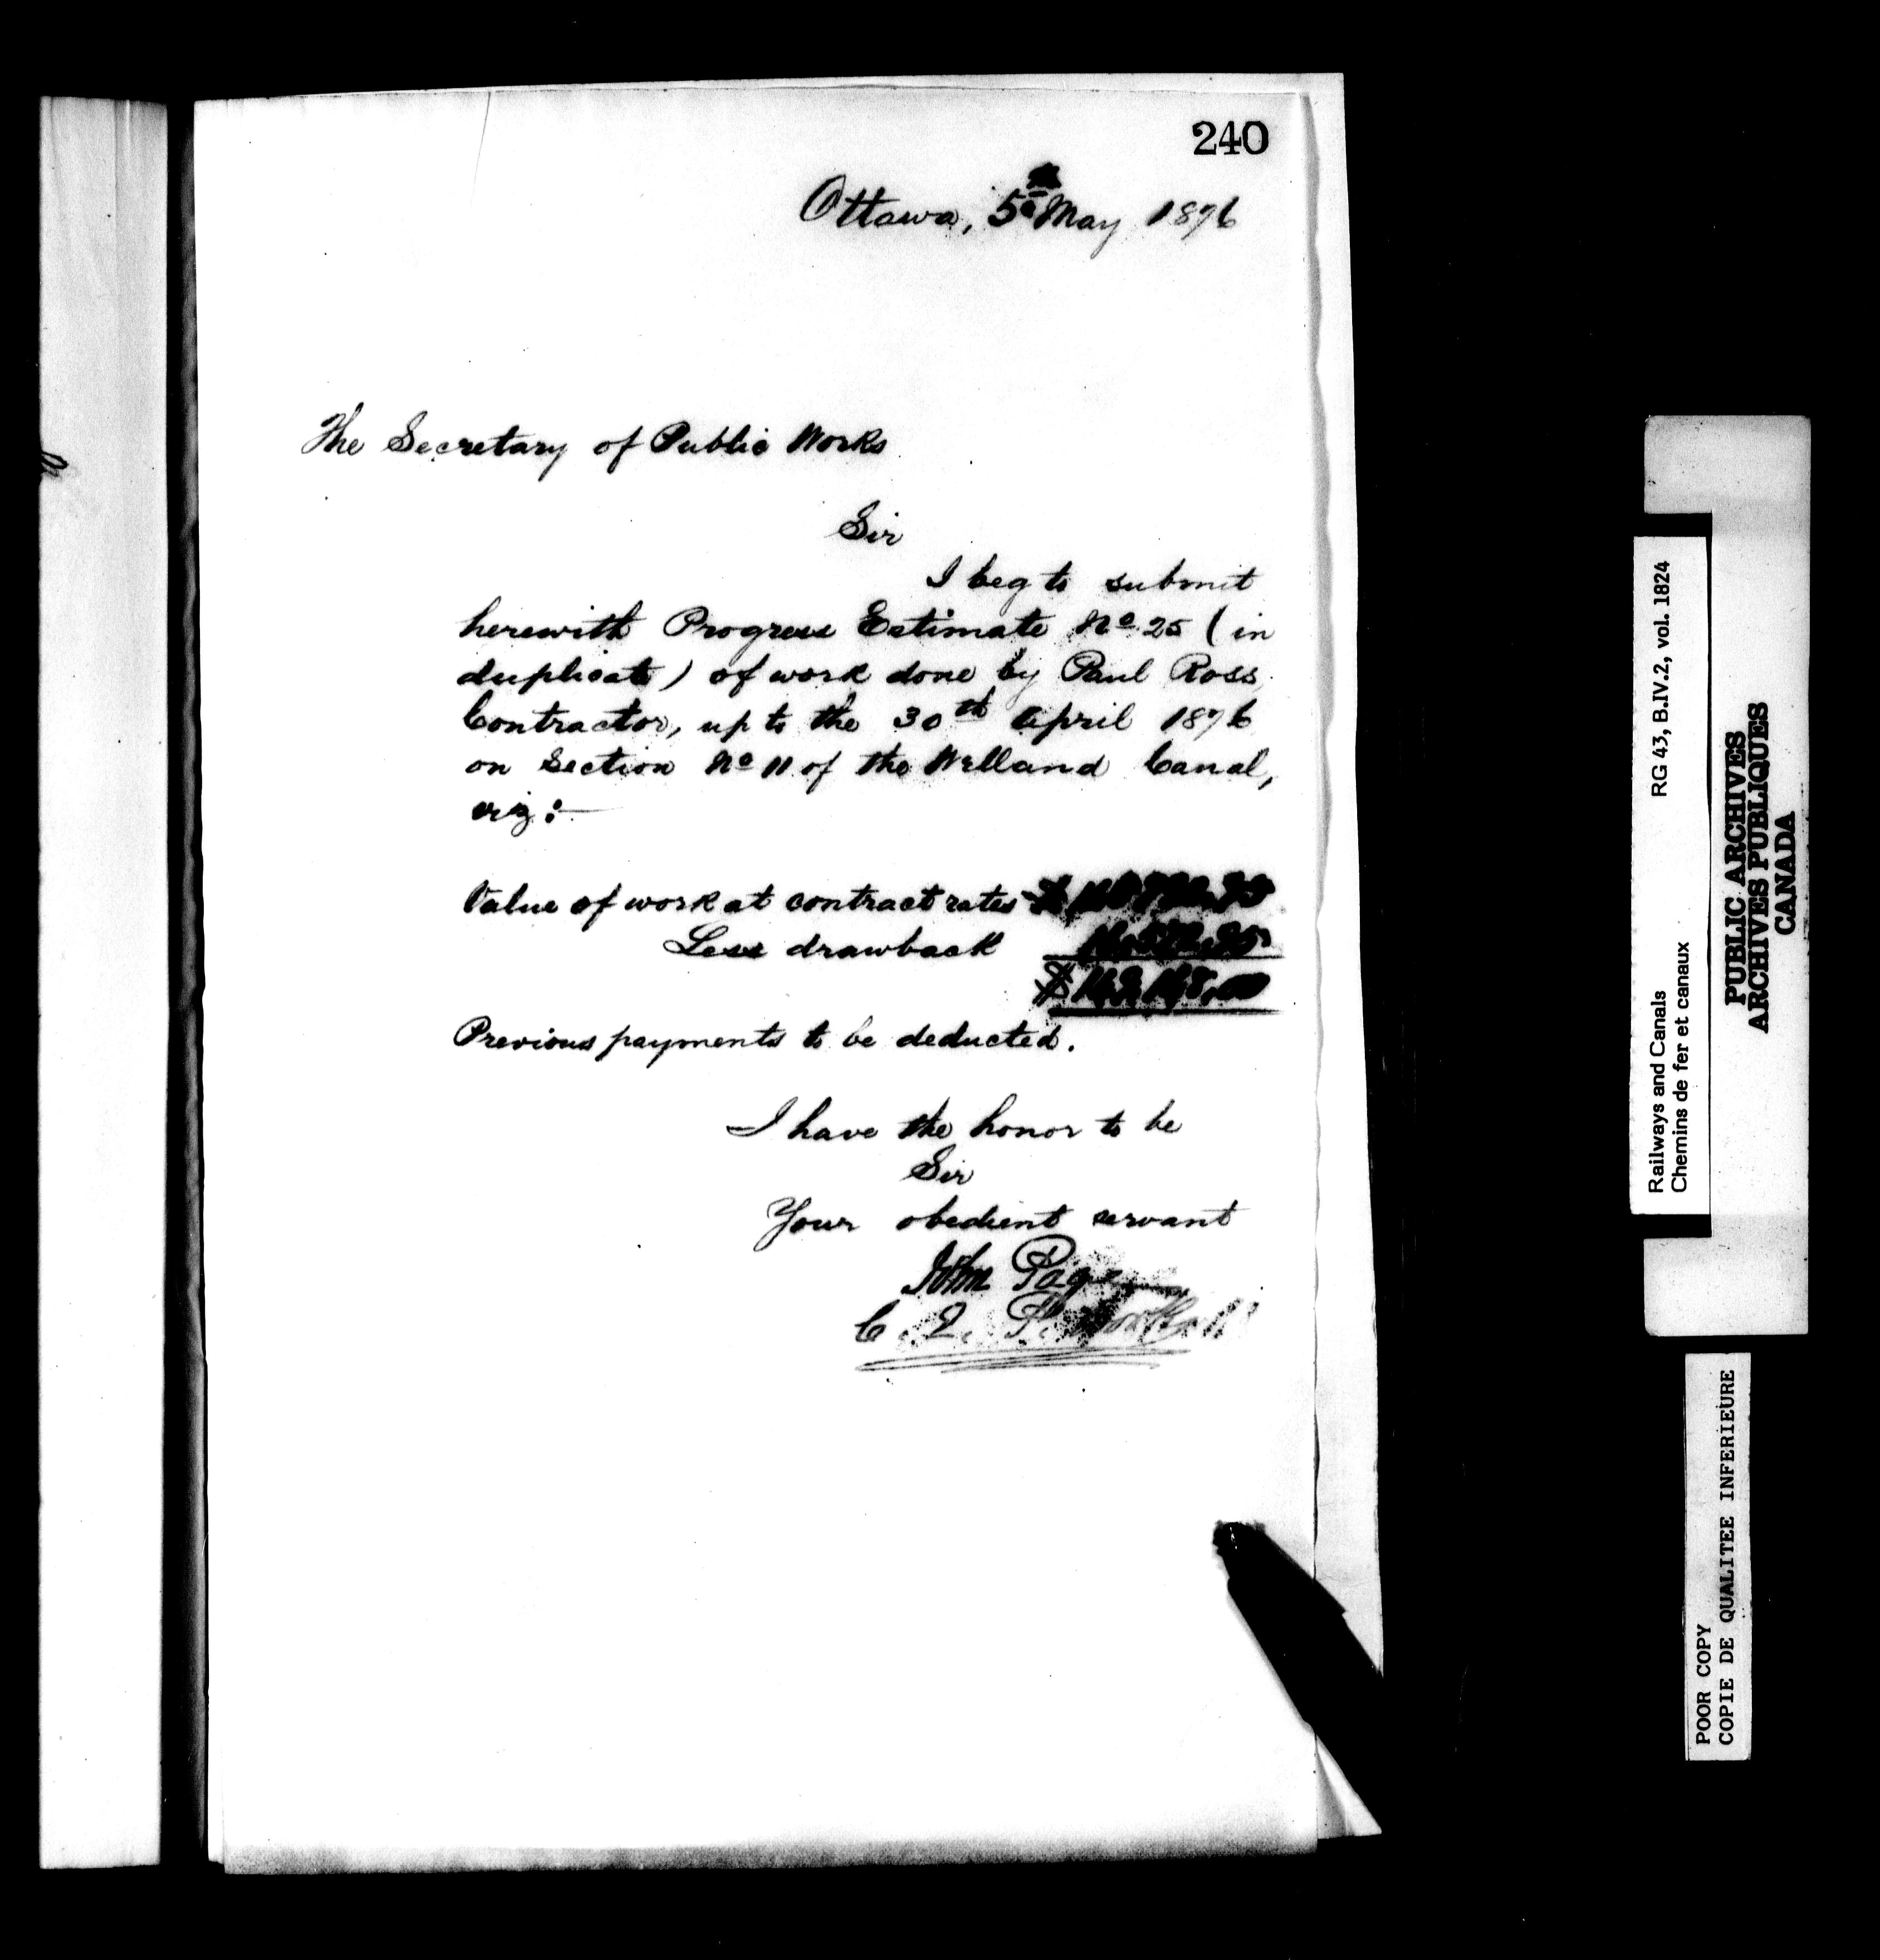 240
Ottawa, 5th May 1876
The Secretary of Public Works
Sir
I beg to submit
herewith Progress Estimate No 25 (in
duplicate) of work done by Paul Ross
Contractor, up to the 30th April 1876
on Section No 11 of the Welland Canal,
viz:—
Value of work at contract rates $
Less drawback
$
Previous payments to be deducted.
I have the honor to be
Sir
Your obedient servant
John Page
C. E. P. Works
Railways and Canals RG 43, B.IV.2, vol. 1824
Chemins de fer et canaux
PUBLIC ARCHIVES
ARCHIVES PUBLIQUES
CANADA
POOR COPY
COPIE DE QUALITEE INFERIEURE